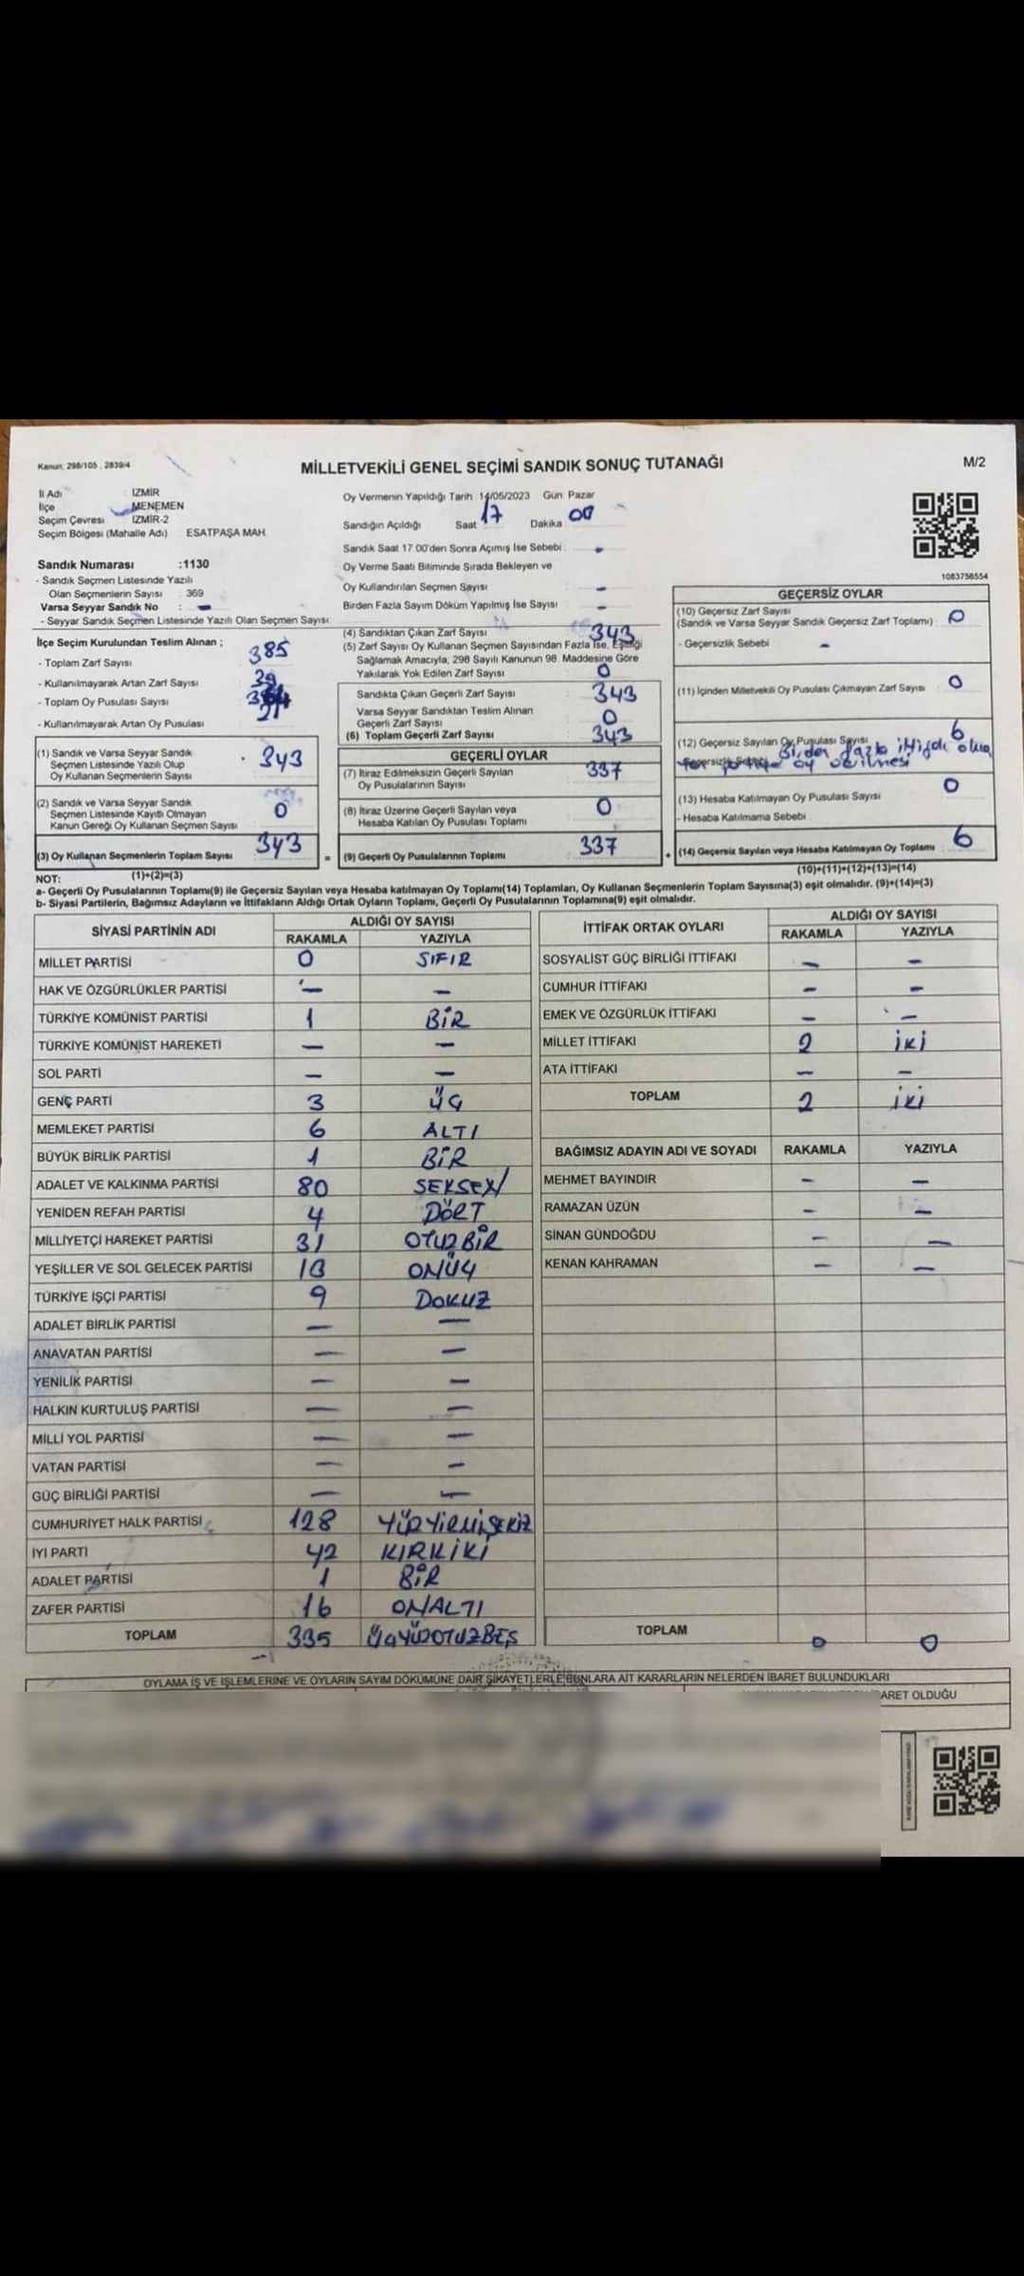 Kanun: 298/105 , 2839/4
MİLLETVEKİLİ GENEL SEÇİMİ SANDIK SONUÇ TUTANAĞI
M/2
İl Adı : İZMİR
İlçe : MENEMEN
Seçim Çevresi : İZMİR-2
Seçim Bölgesi (Mahalle Adı) ESATPAŞA MAH.
Sandık Numarası :1130
- Sandık Seçmen Listesinde Yazılı
Olan Seçmenlerin Sayısı : 369
Varsa Seyyar Sandık No : -
- Seyyar Sandık Seçmen Listesinde Yazılı Olan Seçmen Sayısı:
Oy Vermenin Yapıldığı Tarih 14/05/2023 Gün Pazar
Sandığın Açıldığı Saat 17 Dakika 00
Sandık Saat 17.00'den Sonra Açımış İse Sebebi : -
Oy Verme Saati Bitiminde Sırada Bekleyen ve
Oy Kullandırılan Seçmen Sayısı : -
Birden Fazla Sayım Döküm Yapılmış İse Sayısı : -
1083756554
İlçe Seçim Kurulundan Teslim Alınan ;
- Toplam Zarf Sayısı : 385
- Kullanılmayarak Artan Zarf Sayısı :
- Toplam Oy Pusulası Sayısı :
- Kullanılmayarak Artan Oy Pusulası : 21
(1) Sandık ve Varsa Seyyar Sandık
Seçmen Listesinde Yazılı Olup
Oy Kullanan Seçmenlerin Sayısı : 343
(2) Sandık ve Varsa Seyyar Sandık
Seçmen Listesinde Kayıtlı Olmayan
Kanun Gereği Oy Kullanan Seçmen Sayısı 0
(3) Oy Kullanan Seçmenlerin Toplam Sayısı 343
(1)+(2)=(3)
(4) Sandıktan Çıkan Zarf Sayısı 343
(5) Zarf Sayısı Oy Kullanan Seçmen Sayısından Fazla İse, Eşitliği
Sağlamak Amacıyla, 298 Sayılı Kanunun 98. Maddesine Göre
Yakılarak Yok Edilen Zarf Sayısı 0
Sandıkta Çıkan Geçerli Zarf Sayısı 343
Varsa Seyyar Sandıktan Teslim Alınan
Geçerli Zarf Sayısı 0
(6) Toplam Geçerli Zarf Sayısı 343
GEÇERLİ OYLAR
(7) İtiraz Edilmeksizin Geçerli Sayılan
Oy Pusulalarının Sayısı 337
(8) İtiraz Üzerine Geçerli Sayılan veya
Hesaba Katılan Oy Pusulası Toplamı 0
= (9) Geçerli Oy Pusulalarının Toplamı 337
GEÇERSİZ OYLAR
(10) Geçersiz Zarf Sayısı
(Sandık ve Varsa Seyyar Sandık Geçersiz Zarf Toplamı) : 0
- Geçersizlik Sebebi : -
(11) İçinden Milletvekili Oy Pusulası Çıkmayan Zarf Sayısı 0
(12) Geçersiz Sayılan Oy Pusulası Sayısı 6
Birden fazla ittifak
partiye oy verilmesi
(13) Hesaba Katılmayan Oy Pusulası Sayısı 0
- Hesaba Katılmama Sebebi
+ (14) Geçersiz Sayılan veya Hesaba Katılmayan Oy Toplamı 6
(10)+(11)+(12)+(13)=(14)
NOT:
a- Geçerli Oy Pusulalarının Toplamı(9) ile Geçersiz Sayılan veya Hesaba katılmayan Oy Toplamı(14) Toplamları, Oy Kullanan Seçmenlerin Toplam Sayısına(3) eşit olmalıdır. (9)+(14)=(3)
b- Siyasi Partilerin, Bağımsız Adayların ve İttifakların Aldığı Ortak Oyların Toplamı, Geçerli Oy Pusulalarının Toplamına(9) eşit olmalıdır.
SİYASİ PARTİNİN ADI ALDIĞI OY SAYISI
RAKAMLA YAZIYLA
MİLLET PARTİSİ 0 SIFIR
HAK VE ÖZGÜRLÜKLER PARTİSİ - -
TÜRKİYE KOMÜNİST PARTİSİ 1 BİR
TÜRKİYE KOMÜNİST HAREKETİ - -
SOL PARTİ - -
GENÇ PARTİ 3 ÜÇ
MEMLEKET PARTİSİ 6 ALTI
BÜYÜK BİRLİK PARTİSİ 1 BİR
ADALET VE KALKINMA PARTİSİ 80 SEKSEN
YENİDEN REFAH PARTİSİ 4 DÖRT
MİLLİYETÇİ HAREKET PARTİSİ 31 OTUZBİR
YEŞİLLER VE SOL GELECEK PARTİSİ 13 ONÜÇ
TÜRKİYE İŞÇİ PARTİSİ 9 DOKUZ
ADALET BİRLİK PARTİSİ - -
ANAVATAN PARTİSİ - -
YENİLİK PARTİSİ - -
HALKIN KURTULUŞ PARTİSİ - -
MİLLİ YOL PARTİSİ - -
VATAN PARTİSİ - -
GÜÇ BİRLİĞİ PARTİSİ - -
CUMHURİYET HALK PARTİSİ 128 YÜZYİRMİSEKİZ
İYİ PARTİ 42 KIRKİKİ
ADALET PARTİSİ 1 BİR
ZAFER PARTİSİ 16 ONALTI
TOPLAM 335 ÜÇYÜZOTUZBEŞ
İTTİFAK ORTAK OYLARI ALDIĞI OY SAYISI
RAKAMLA YAZIYLA
SOSYALİST GÜÇ BİRLİĞİ İTTİFAKI - -
CUMHUR İTTİFAKI - -
EMEK VE ÖZGÜRLÜK İTTİFAKI - -
MİLLET İTTİFAKI 2 İKİ
ATA İTTİFAKI - -
TOPLAM 2 İKİ
BAĞIMSIZ ADAYIN ADI VE SOYADI RAKAMLA YAZIYLA
MEHMET BAYINDIR - -
RAMAZAN ÜZÜN - -
SİNAN GÜNDOĞDU - -
KENAN KAHRAMAN - -
TOPLAM 0 0
OYLAMA İŞ VE İŞLEMLERİNE VE OYLARIN SAYIM DÖKÜMÜNE DAİR ŞİKAYETLERLE BUNLARA AİT KARARLARIN NELERDEN İBARET BULUNDUKLARI
İBARET OLDUĞU